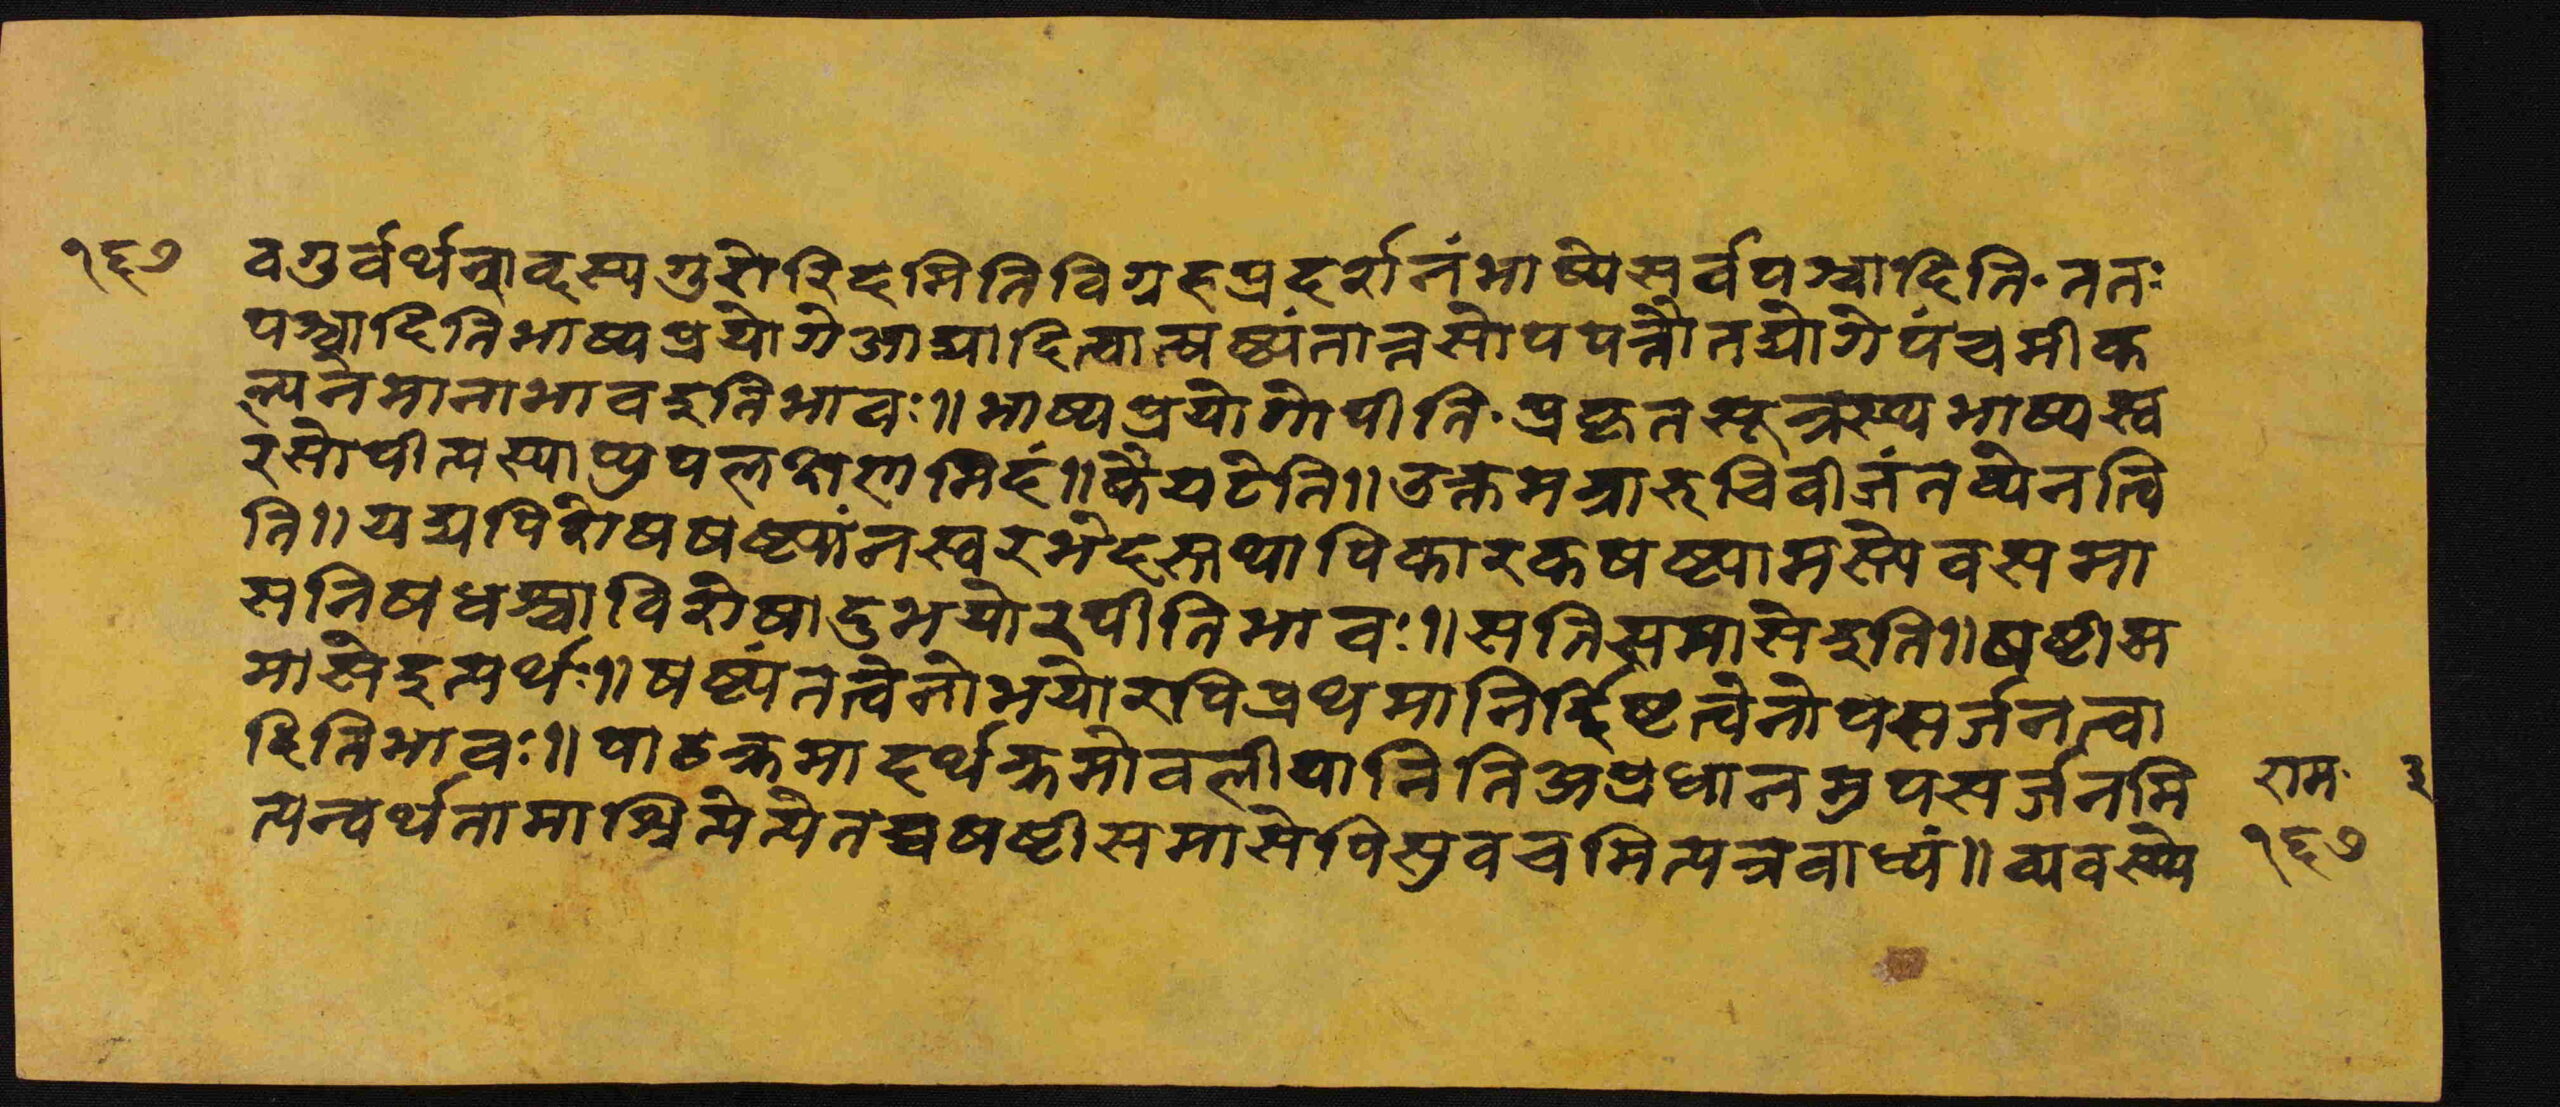 १६७ वगुर्वर्थत्वात्स्यगुरोरिदमितिविग्रहप्रदर्शनंभाष्येसर्वपश्चादिति॰ततः
पश्चादितिभाष्यप्रयोगेआद्यादित्वात्षष्ठ्यंतात्तसोपपत्तौतद्योगेपंचमीक
ल्पनेमानाभावइतिभावः॥भाष्यप्रयोगोपीति॰प्रकृतसूत्रस्थभाष्यस्व
रसोपीत्यस्याप्युपलक्षणमिदं॥कैयटेति॥उक्तमत्रारुचिबीजंतव्येनत्वि
ति॥यद्यपिशेषषष्ठ्यांनस्वरभेदस्तथापिकारकषष्ठ्यामस्त्येवसमा
सनिषेधश्चाविशेषादुभयोरपीतिभावः॥सतिसमासेइति॥षष्ठीस
मासेइत्यर्थः॥षष्ठ्यंतत्वेनोभयोरपिप्रथमानिर्द्दिष्टत्वेनोपसर्जनत्वा
दितिभावः॥पाठक्रमादर्थक्रमोबलीयानितिअप्रधानमुपसर्जनमि
त्यन्वर्थतामाश्रित्येत्येतच्चषष्ठीसमासेपिसुवचमित्यत्रबोध्यं॥व्यवस्थे
राम॰ ३
१६७